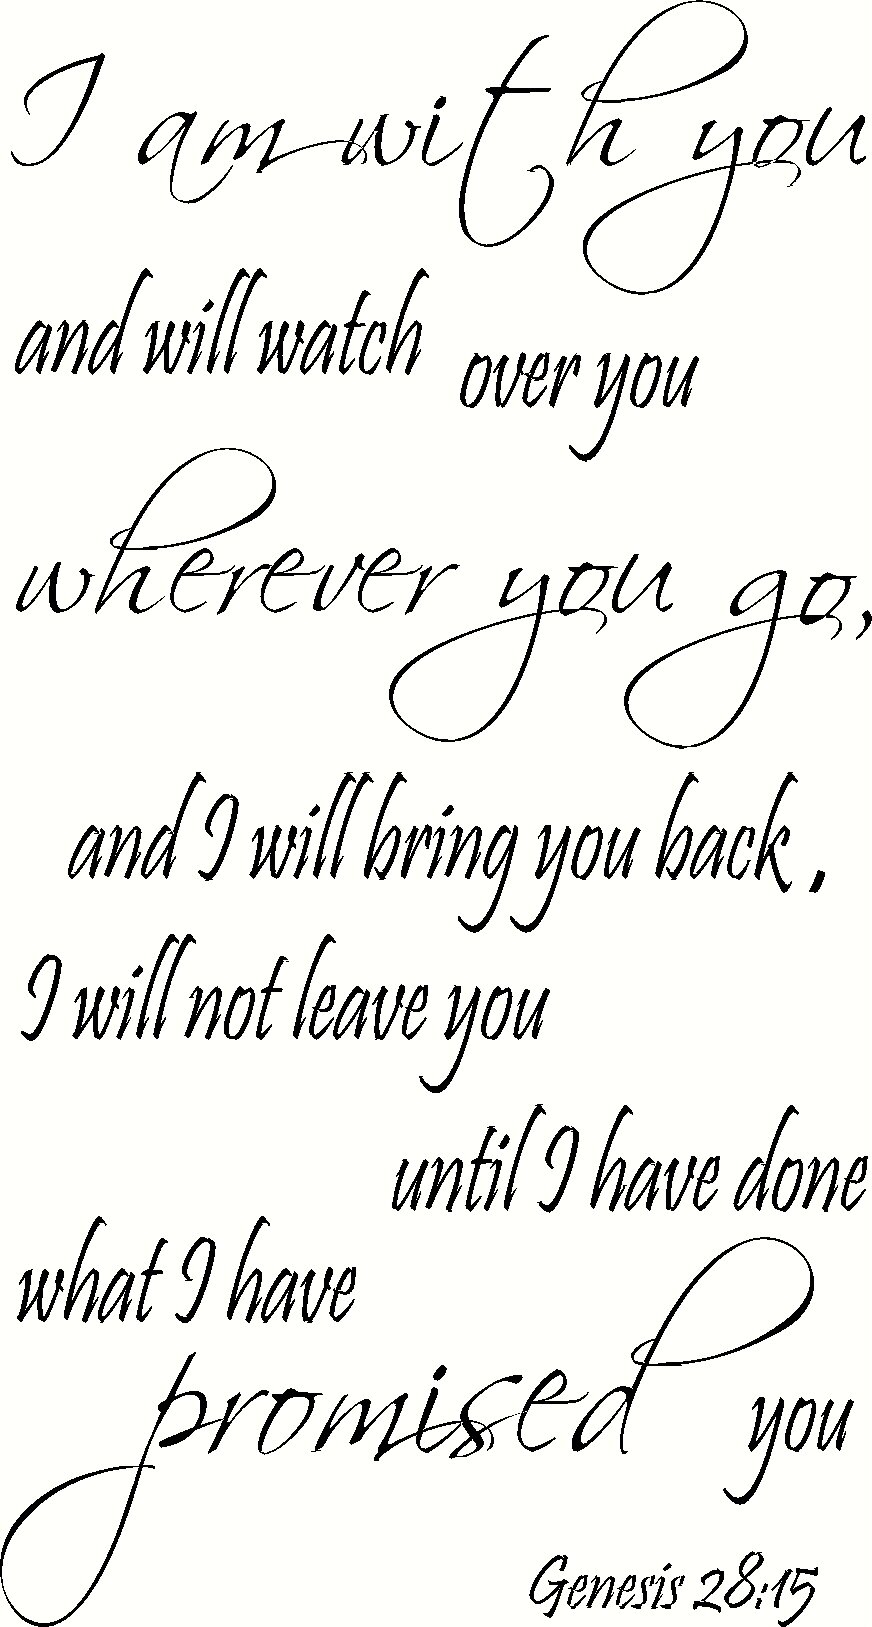 I am with you
and will watch over you
wherever you go,
and I will bring you back,
I will not leave you
until I have done
what I have
promised you
Genesis 28:15